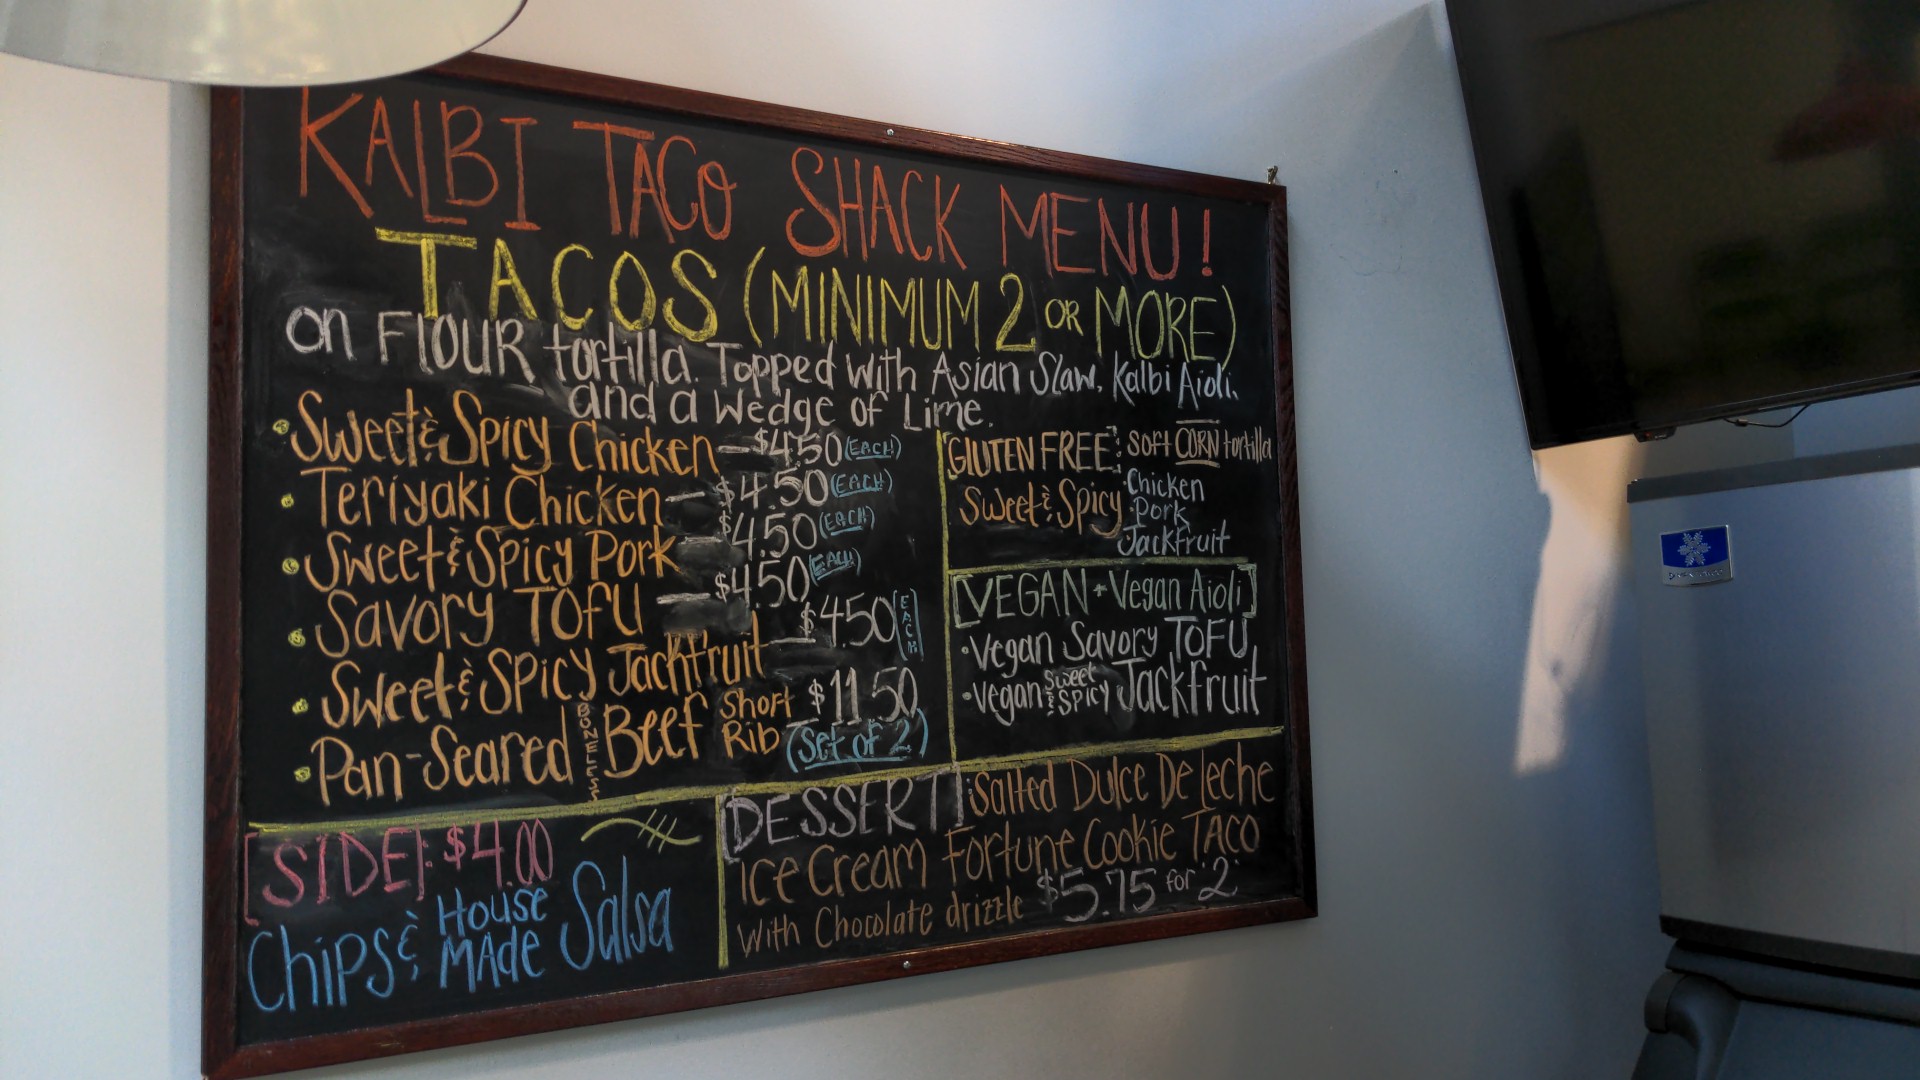 KALBI TACO SHACK MENU!
TACOS (MINIMUM 2 OR MORE)
on FLOUR tortilla. Topped with Asian Slaw, Kalbi Aioli,
and a Wedge of Lime.
• Sweet & Spicy Chicken — $4.50 (EACH)
• Teriyaki Chicken — $4.50 (EACH)
• Sweet & Spicy Pork — $4.50 (EACH)
• Savory TOFU — $4.50 (EACH)
• Sweet & Spicy Jackfruit — $4.50 (EACH)
• Pan-Seared BONELESS Beef Short Rib $11.50 (Set of 2)
GLUTEN FREE: Soft CORN tortilla
Sweet & Spicy
• Chicken
• Pork
Jackfruit
[VEGAN + Vegan Aioli]
• Vegan Savory TOFU
• Vegan Sweet & Spicy Jackfruit
[SIDE]: $4.00
Chips & House Made Salsa
[DESSERT]: Salted Dulce De Leche
Ice Cream Fortune Cookie TACO
With Chocolate drizzle $5.75 for 2